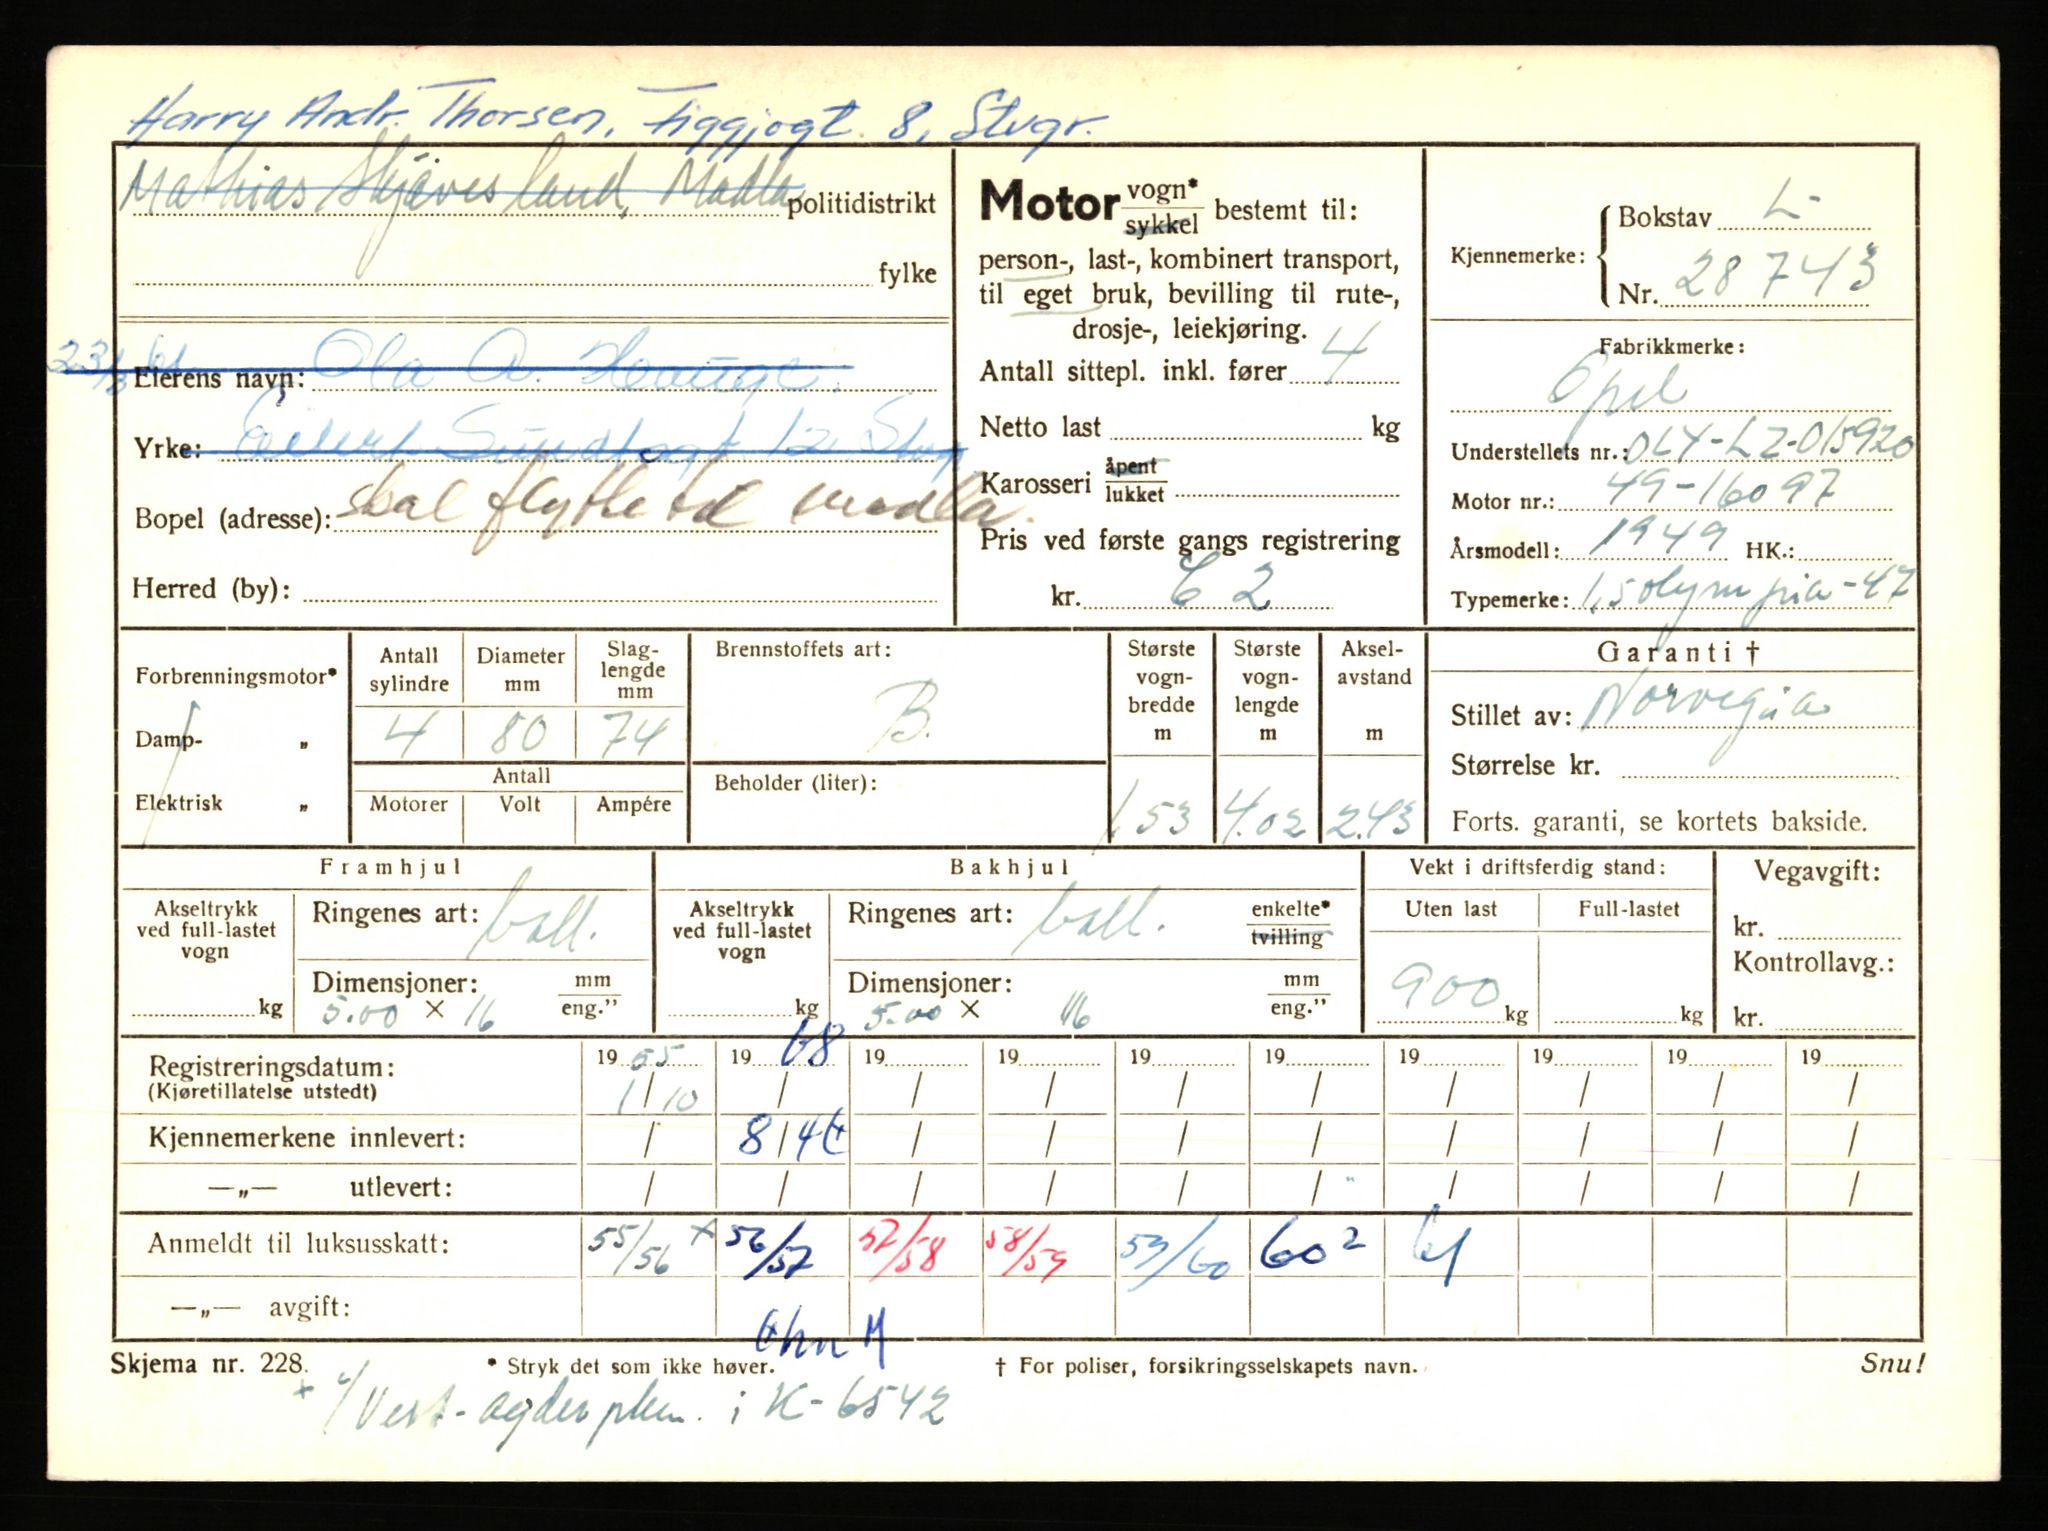 Harry Andr. Thorsen, Figgjogt. 8, Stvgr.
Mathias Skjævesland, Madla politidistrikt
fylke
23/3 61
Eierens navn: Ola A. Hauge
Yrke: Eilert Sundtsgt 12 Stvg
Bopel (adresse): skal flytte til Madla.
Herred (by):
Motor vogn* sykkel bestemt til:
person-, last-, kombinert transport,
til eget bruk, bevilling til rute-,
drosje-, leiekjøring.
Antall sittepl. inkl. fører 4
Netto last kg
Karosseri åpent lukket
Pris ved første gangs registrering
kr. C 2
Kjennemerke: Bokstav L-
Nr. 28743
Fabrikkmerke:
Opel
Understellets nr.: OLY-LZ-015920
Motor nr.: 49-16097
Årsmodell: 1949 HK.:
Typemerke: 1,5 olympia-47
Forbrenningsmotor*
Damp- „
Elektrisk „
Antall sylindre Diameter mm Slag-lengde mm
4 80 74
Antall
Motorer Volt Ampére
Brennstoffets art:
B.
Beholder (liter):
Største vogn-bredde m Største vogn-lengde m Aksel-avstand m
1.53 4.02 2.43
Garanti †
Stillet av: Norvegia
Størrelse kr.
Forts. garanti, se kortets bakside.
Framhjul
Akseltrykk ved full-lastet vogn
kg
Ringenes art: ball.
Dimensjoner: mm eng.”
5.00 × 16
Bakhjul
Akseltrykk ved full-lastet vogn
kg
Ringenes art: ball. enkelte* tvilling
Dimensjoner: mm eng.”
5.00 × 16
Vekt i driftsferdig stand:
Uten last Full-lastet
900 kg kg
Vegavgift:
kr.
Kontrollavg.:
kr.
Registreringsdatum: 19 55 19 68 19 19 19 19 19 19 19 19
(Kjøretillatelse utstedt) 1/10 / / / / / / / / /
Kjennemerkene innlevert: / 8/4 / / / / / / / /
—„— utlevert: / / / / / / / / / /
Anmeldt til luksusskatt: 55/56 x 56/57 57/58 58/59 59/60 60² 61
—„— avgift:
Skjema nr. 228. * Stryk det som ikke høver. † For poliser, forsikringsselskapets navn. Snu!
+ 4/ Vest-agder i K-6542